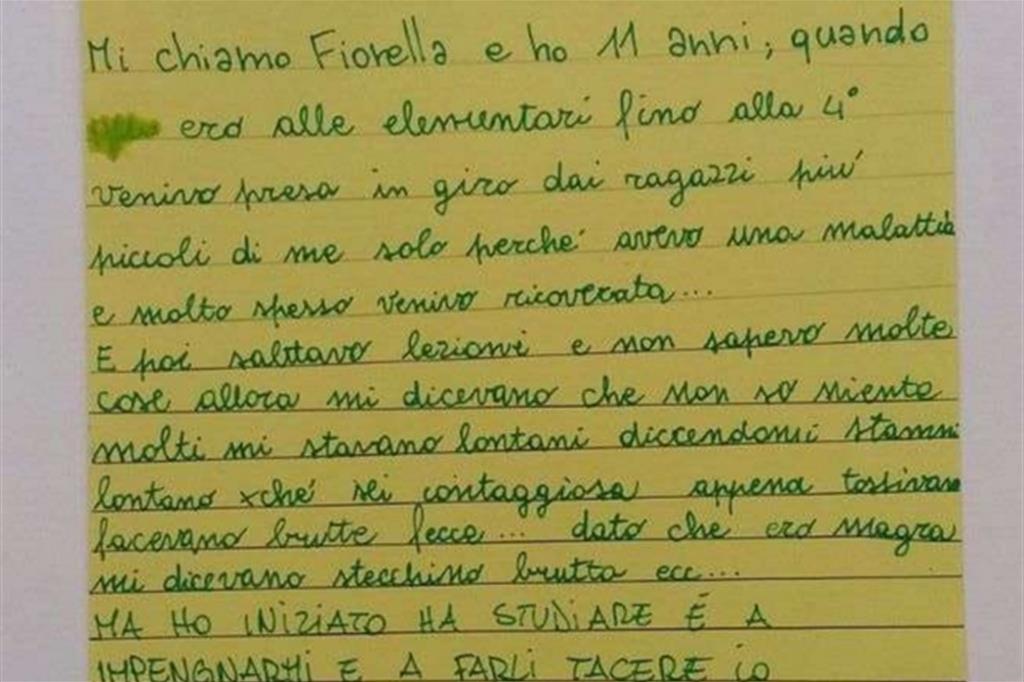 Mi chiamo Fiorella e ho 11 anni, quando
ero alle elementari fino alla 4°
venivo presa in giro dai ragazzi piú
piccoli di me solo perché avevo una malattia
e molto spesso venivo ricoverata...
E poi saltavo lezioni e non sapevo molte
cose allora mi dicevano che non so niente
molti mi stavano lontani diccendomi stammi
lontano xché sei contaggiosa appena tossivano
facevano brutte fecce... dato che ero magra
mi dicevano stecchino brutta ecc...
MA HO INIZIATO HA STUDIARE É A
IMPENGNARMI E A FARLI TACERE io